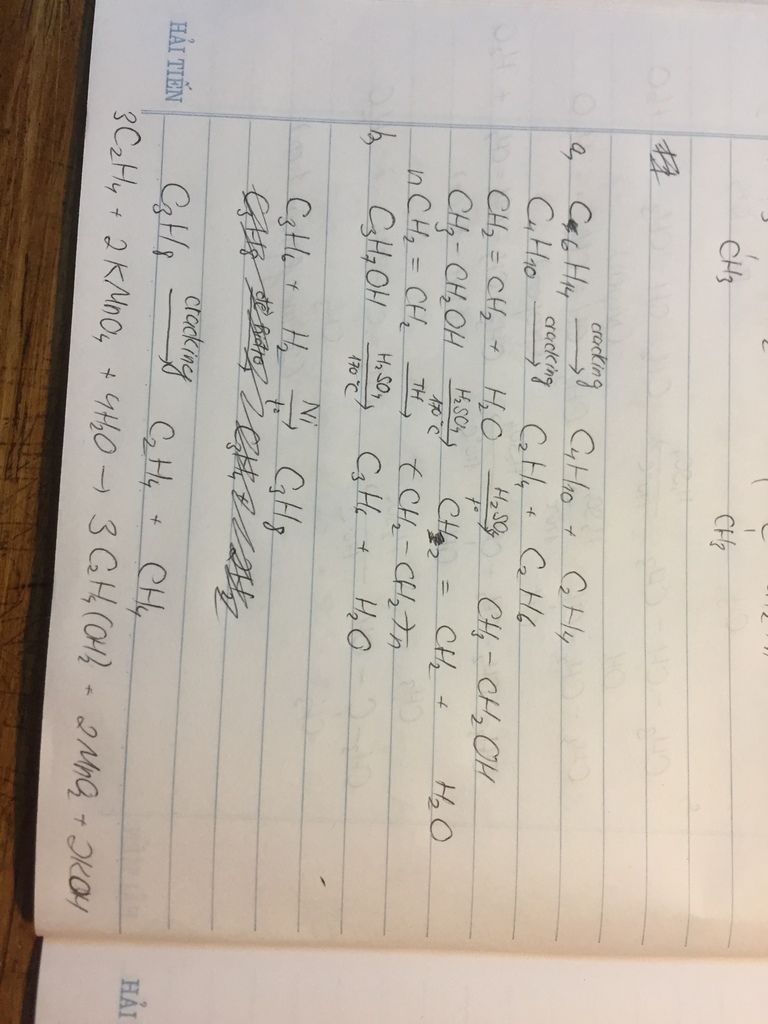 CH3 CH3
a, C6H14 cracking → C4H10 + C2H4
C4H10 cracking → C2H4 + C2H6
CH2 = CH2 + H2O H2SO4 → t° CH3 – CH2OH
CH3 – CH2OH H2SO4 → 170°C CH2 = CH2 + H2O
nCH2 = CH2 TH → (CH2 – CH2)n
b, C3H7OH H2SO4 → 170°C C3H6 + H2O
C3H6 + H2 Ni → t° C3H8
C3H8 cracking → C2H4 + CH4
3C2H4 + 2KMnO4 + 4H2O → 3C2H4(OH)2 + 2MnO2 + 2KOH
HẢI TIẾN
HẢI